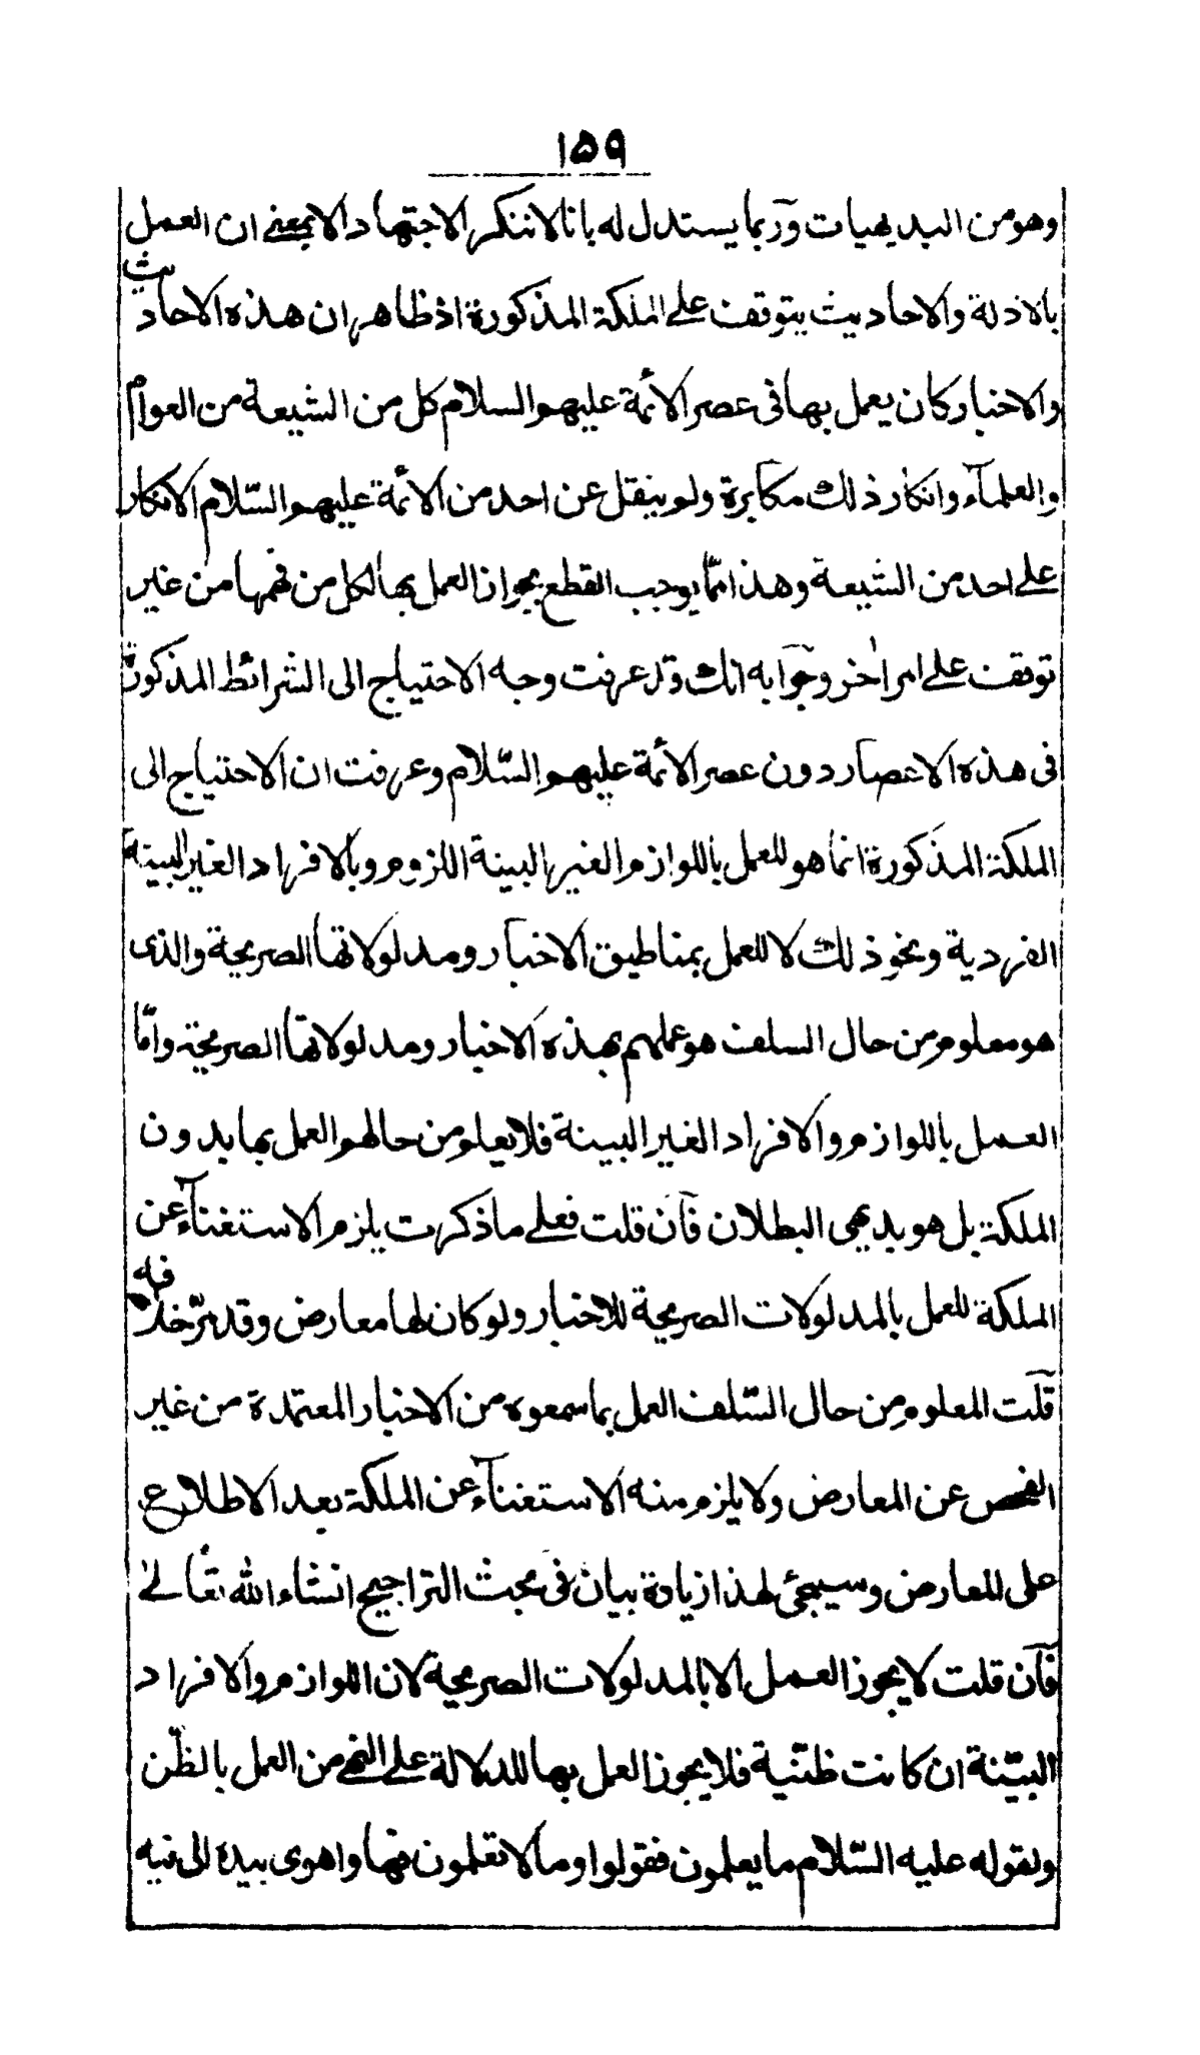 ١٥٩
وهو من البديهيات وربما يستدل له بانا لا ننكر الاجتهاد الا بمعنى ان العمل
بالادلة والاحاديث يتوقف على الملكة المذكورة اذ ظاهر ان هذه الاحاديث
والاخبار كان يعمل بها فى عصر الأئمة عليهم السلام كل من الشيعة من العوام
والعلمآء وانكار ذلك مكابرة ولم ينقل عن احد من الائمة عليهم السّلام الانكار
على احد من الشيعة وهذا ممّا يوجب القطع بجواز العمل بها لكل من فهمها من غير
توقف على امر اخر وجوابه انك قد عرفت وجه الاحتياج الى الشرائط المذكورة
فى هذه الاعصار دون عصر الأئمة عليهم السّلام وعرفت ان الاحتياج الى
الملكة المذكورة انما هو للعمل باللوازم الغير البينة اللزوم وبالافراد الغير البينة
الفردية ونحو ذلك لا للعمل بمناطيق الاخبار ومدلولاتها الصريحة والذى
هو معلوم من حال السلف هو عملهم بهذه الاخبار ومدلولاتها الصريحة وامّا
العمل باللوازم والافراد الغير البينة فلا يعلم من حالهم العمل بها بدون
الملكة بل هو بديهى البطلان فآن قلت فعلى ما ذكرت يلزم الاستغناء عن
الملكة للعمل بالمدلولات الصريحة للاخبار ولو كان لها معارض وقد مرّ خلافه
قلت المعلوم من حال السّلف العمل بما سمعوه من الاخبار المعتمدة من غير
الفحص عن المعارض ولا يلزم منه الاستغنآء عن الملكة بعد الاطلاع
على المعارض وسيجئ لهذا زيادة بيان فى مبحث التراجيح انشاء الله تعالى
فآن قلت لا يجوز العمل الا بالمدلولات الصريحة لان اللوازم والافراد
البيّنة ان كانت ظنّية فلا يجوز العمل بها للدلالة على النهى من العمل بالظّن
ولقوله عليه السّلام ما يعلمون فقولوا وما لا تعلمون فها واهوى بيده الى فيه